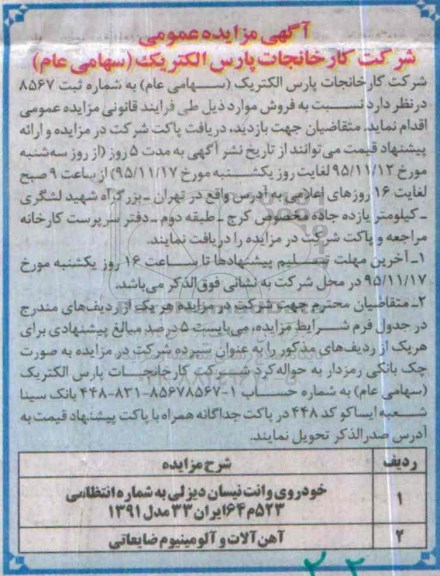 آگهی مزایده عمومی
شرکت کارخانجات پارس الکتریک (سهامی عام)
شرکت کارخانجات پارس الکتریک (سهامی عام) به شماره ثبت ۸۵۶۷
درنظر دارد نسبت به فروش موارد ذیل طی فرایند قانونی مزایده عمومی
اقدام نماید. متقاضیان جهت بازدید، دریافت پاکت شرکت در مزایده و ارائه
پیشنهاد قیمت می‌توانند از تاریخ نشر آگهی به مدت ۵ روز (از روز سه‌شنبه
مورخ ۹۵/۱۱/۱۲ لغایت روز یکشنبه مورخ ۹۵/۱۱/۱۷) از ساعت ۹ صبح
لغایت ۱۶ روزهای اعلامی به آدرس واقع در تهران ـ بزرگراه شهید لشگری
ـ کیلومتر یازده جاده مخصوص کرج ـ طبقه دوم ـ دفتر سرپرست کارخانه
مراجعه و پاکت شرکت در مزایده را دریافت نمایند.
۱ـ آخرین مهلت تسلیم پیشنهادها تا ساعت ۱۶ روز یکشنبه مورخ
۹۵/۱۱/۱۷ در محل شرکت به نشانی فوق‌الذکر می‌باشد.
۲ـ متقاضیان محترم جهت شرکت در مزایده هر یک از ردیف‌های مندرج
در جدول فرم شرایط مزایده، می‌بایست ۵ درصد مبالغ پیشنهادی برای
هریک از ردیف‌های مذکور را به عنوان سپرده شرکت در مزایده به صورت
چک بانکی رمزدار به حواله‌کرد شرکت کارخانجات پارس الکتریک
(سهامی عام) به شماره حساب ۱-۸۵۶۷۸۵۶۷-۸۳۱-۴۴۸ بانک سینا
شعبه ایساکو کد ۴۴۸ در پاکت جداگانه همراه با پاکت پیشنهاد قیمت به
آدرس صدرالذکر تحویل نمایند.
ردیف شرح مزایده
۱ خودروی وانت نیسان دیزلی به شماره انتظامی
۵۲۳م۶۴ ایران ۳۳ مدل ۱۳۹۱
۲ آهن‌آلات و آلومینیوم ضایعاتی